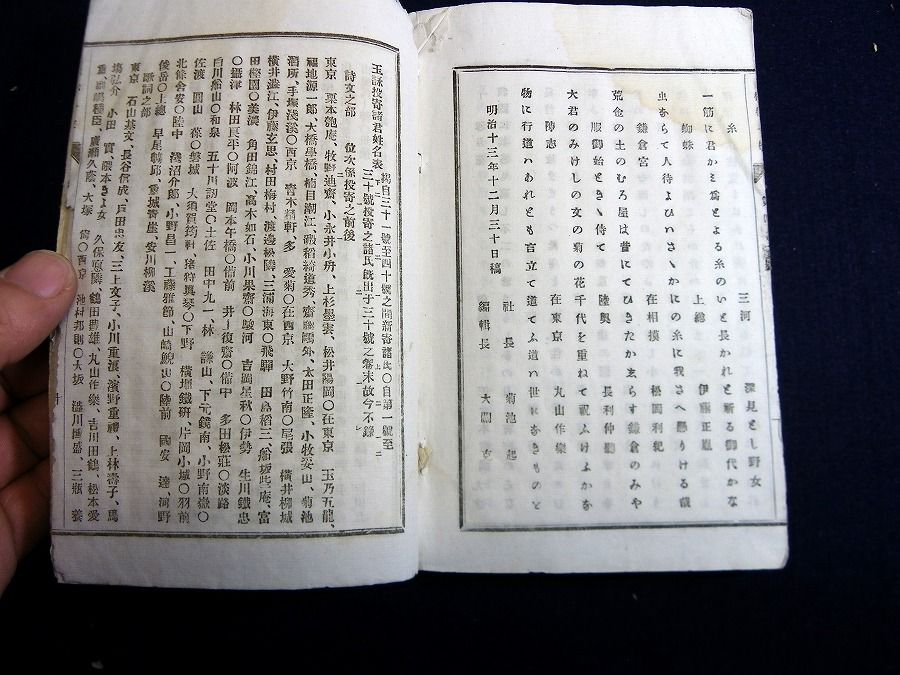 糸 三河 深見とし野女
一筋に君かゝ為とよる糸のいと長かれと祈る御代かな
蜘蛛 上総 伊藤正胤
虫ならて人待よひハさゝかにの糸に我さへ懸りける哉
鎌倉宮 在相摸 松岡利紀
荒金の土のむろ屋は昔にてひきたかゑらす鎌倉のみや
服御始ときゝ侍て 陸奥 長利仲聽
大君のみけしの文の菊の花千代を重ねて祝ふけふかな
陳志 在東京 丸山作樂
物に行道ハあれとも言立て道てふ道ハ世になきものと
明治十三年十二月三十日稿
社長 菊池 起
編輯長 大關 克
玉詠投寄諸君姓名表 揭自三十一號至四十號之間新寄諸氏〇自第一號至三十號投寄之諸氏既出于三十號之卷末故今不錄
詩文之部 位次係投寄之前後
東京 栗本匏庵、牧野迪齋、小永井小舟、上杉墨雲、松井陽岡〇在東京 玉乃五龍、
福地源一郎、大橋學橋、楠目潮江、磯稻綺道秀、齋藤鷗外、太田正隆、小牧姿山、菊池
酒所、手塚淺溪〇西京 青木精軒 多 愛菊〇在西京 大野竹南〇尾張 橫井柳城
橫井澁江、伊藤玄思、村田梅村、渡邊松隣、三浦海東〇飛驒 田島稻三、船坂些庵、富
田樫園〇美濃 角田錦江、高木如石、小川果齋〇駿河 吉岡星秋〇伊勢 生川鐵忠
〇攝津 林田良平〇阿波 岡本午橋〇備前 井上復齋〇備中 多田松莊〇淡路
白川船山〇和泉 五十川訒堂〇土佐 田中九一 林 謙山、下元鶴南 小野南嶽〇
佐渡 圓山 葆〇磐城 大須賀筠軒、猪狩眞琴〇下野 橫堀鐵研、片岡小城〇羽前
北條含安〇陸中 淺沼介郎、小野昌一、工藤雅節、山崎鯢山〇陸前 國安 達河野
後岳〇上總 早尾麟邱、重城菁崖、安川柳溪
歌詞之部
東京 石山基文、長谷信成、戶田忠友、三上女子、小川重漢、濱野重禮、上林壽子、馬
塲弘介 小田 實、嚴本きよ女 久保悳隣、鶴田豐雄、丸山作樂、吉川田鶴、松本愛
重、綾縣縣臣、廣瀨久蔭、大塚 簡〇西京 池村邦則〇大坂 澁川博盛、三瓶 養